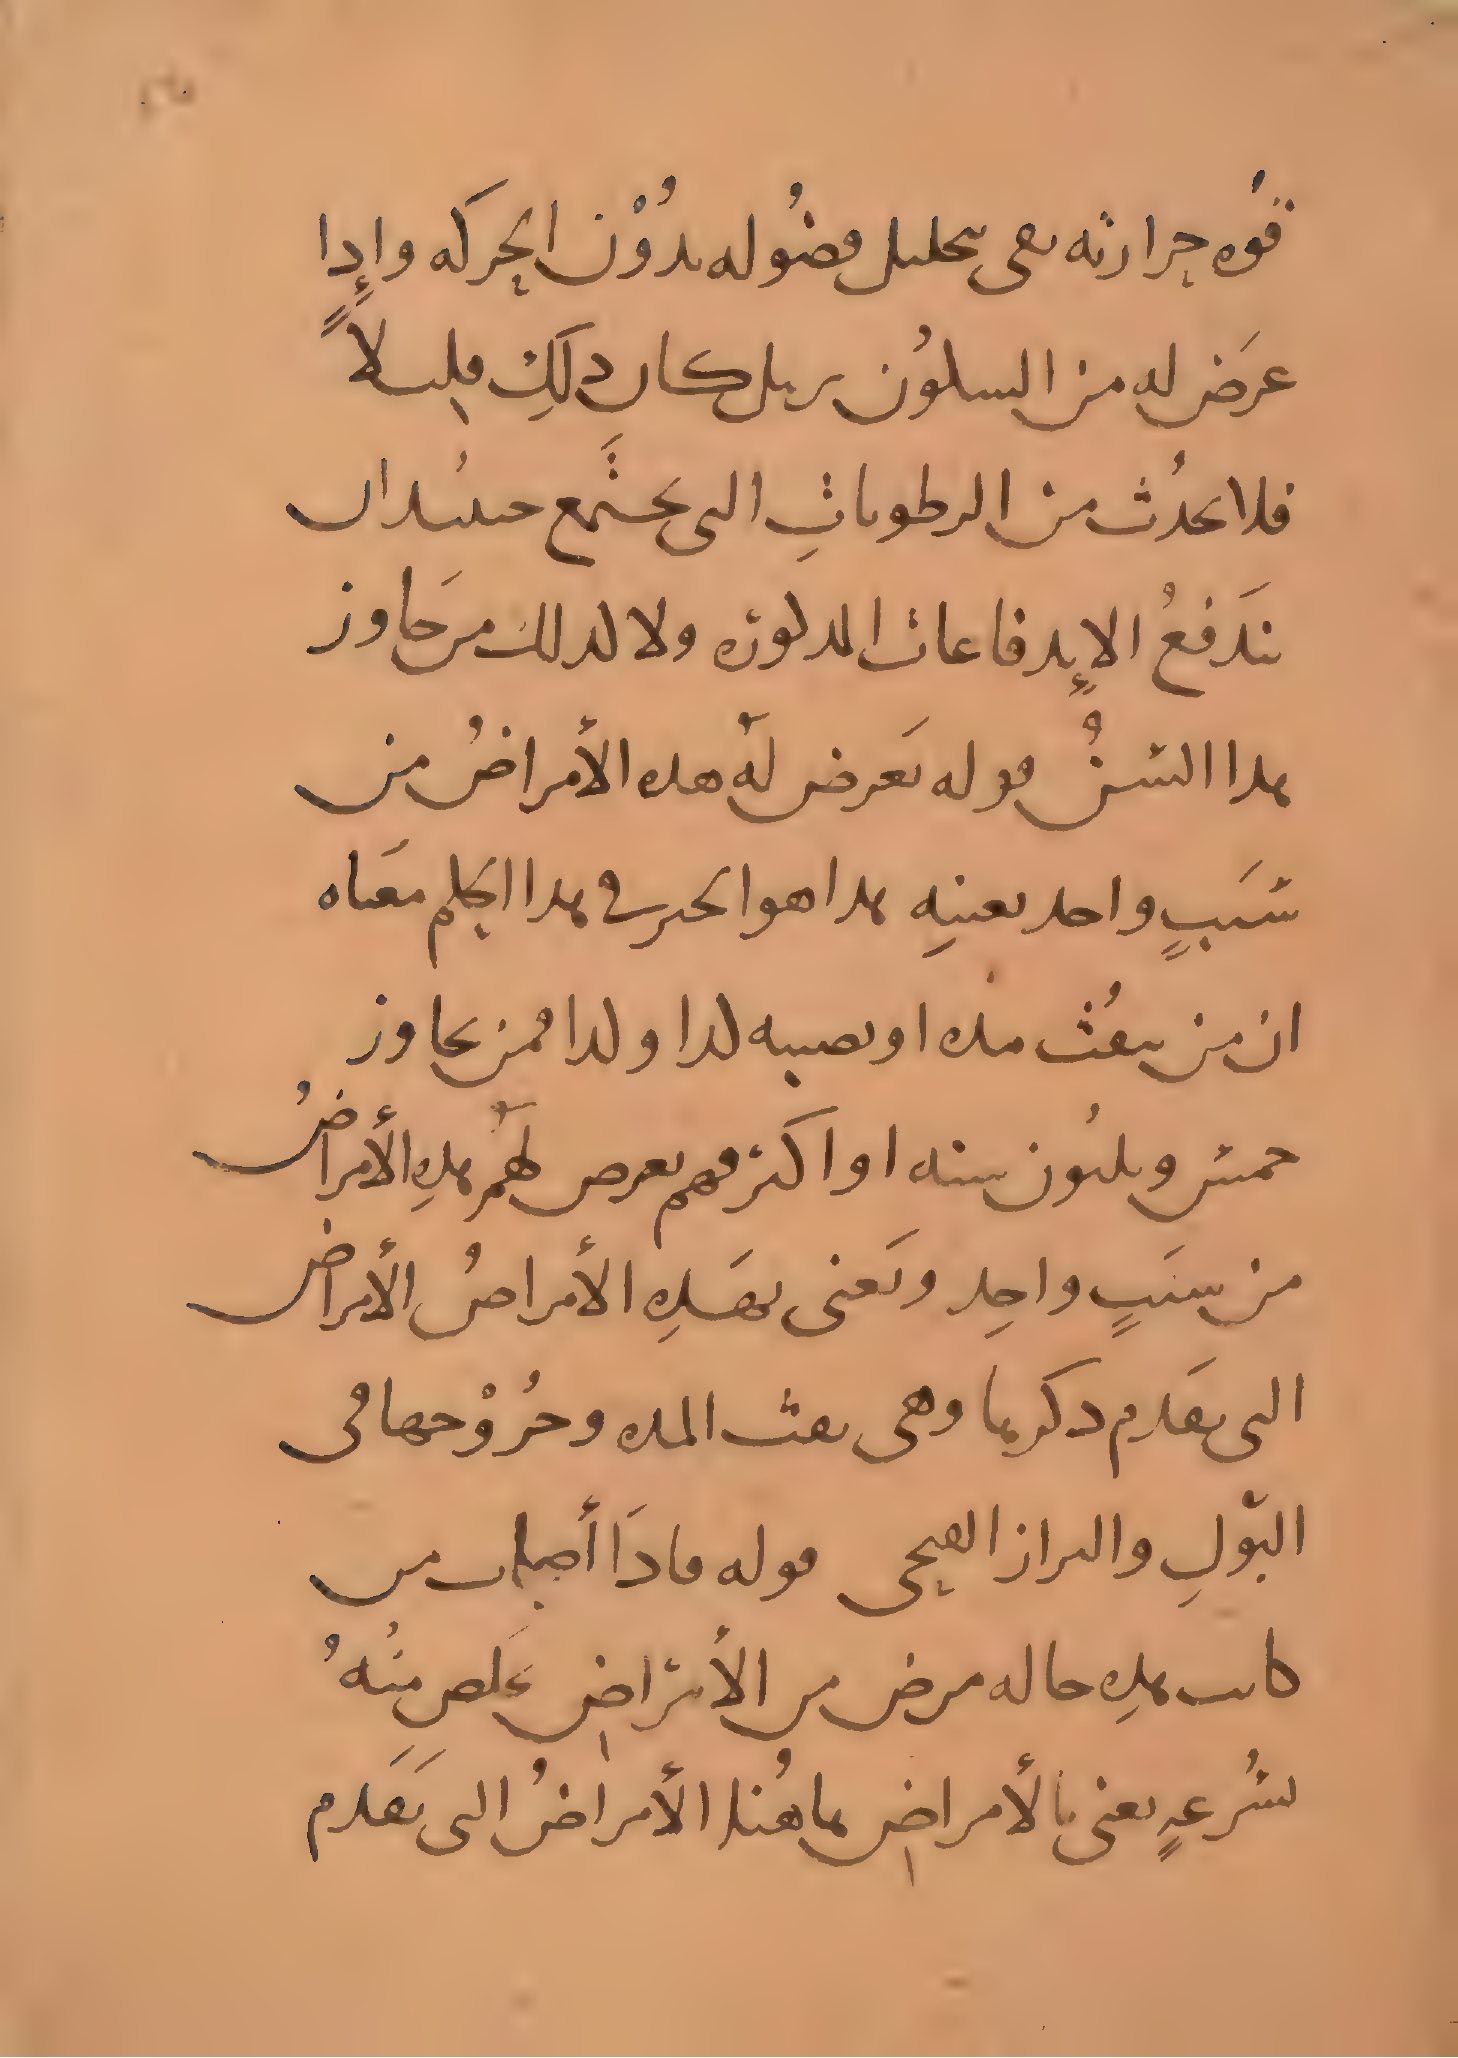 قوه حرارته تفى بتحليل فضوله بدُوْن الحركه وإدا
عرَض له من السكون بربل كان دلك قليلاً
فلا يحدُث من الرطوبات التى تجتمع حينئذ ان
تندَفعُ الإندفاعات المدكوره ولا كدلك من جاوز
هدا السنُّ قوله تَعرض لهُ هده الأمراضُ من
سَبَبٍ واحد بعينهِ هدا هو الخبر فى هدا الكلم معَناه
ان من ينفُث مده او يصيبه كدا وكدا فمن تجاوز
خمس وثلثُون سنه او اكثر فهم يعرض لهمُ هدهِ الأمراضُ
من سبَبٍ واحِد وتَعنى بهَدِهِ الأمراضُ الأمراض
التى تقَدم دكرها وهى نفث المده وخُروْجها فى
البَوْلِ والبراز القيحى قوله فادَا أصاب من
كانت هدهِ حاله مرض من الأمراض خَلص منْهُ
بسُرعهٍ يعنى بالأمراض هاهُنا الأمراضُ التى تَقَدم